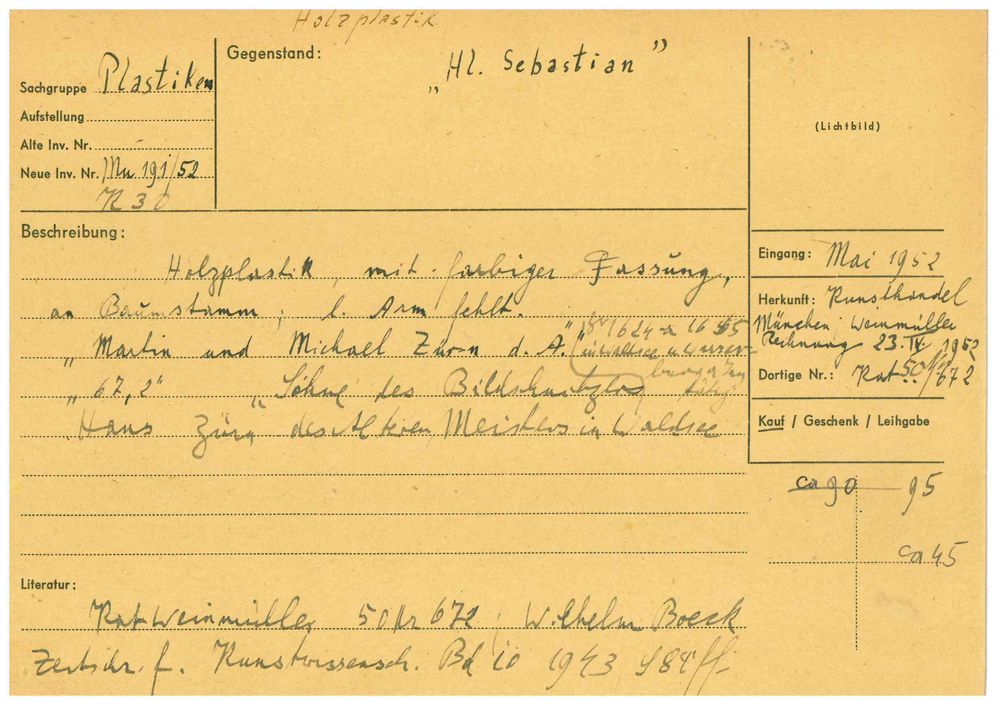 Holzplastik
Sachgruppe Plastiken
Aufstellung
Alte Inv. Nr.
Neue Inv. Nr. Mu 191/52
K 30
Gegenstand:
„Hl. Sebastian”
(Lichtbild)
Beschreibung:
Holzplastik, mit farbiger Fassung,
an Baumstamm; l. Arm fehlt.
„Martin und Michael Zürn d. Ä.”
1624
in Waldsee u
„67,2” „Söhne des Bildschnitzlos
Hans Zürn des Älteren, Meistlos in Waldsee
Eingang: Mai 1952
Herkunft: Kunsthandel
München: Weinmüller
Rechnung 23. IV. 1952
Dortige Nr.: Kat 50 Nr 672
Kauf / Geschenk / Leihgabe
ca 90 95
ca 45
Literatur:
Kat Weinmüller 50 Nr 672; Wilhelm Boeck
Zeitschr. f. Kunstwissensch. Bd 10 1943 S 84 ff